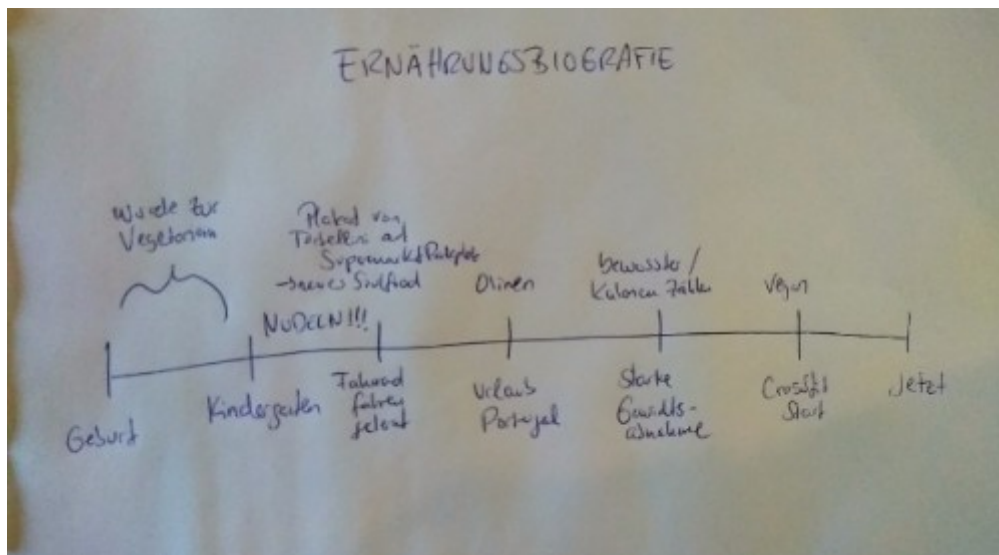 ERNÄHRUNGSBIOGRAFIE
Wurde zur
Vegetarierin
Plakat von
Tortellini auf
Supermarkt Parkplatz
→ Soulfood
NUDELN!!!
Oliven
bewusster /
Kalorien Zählen
Vegan
Geburt
Kindergarten
Fahrrad
fahren
gelernt
Urlaub
Portugal
Starke
Gewichts-
abnahme
Crossfit
Start
Jetzt